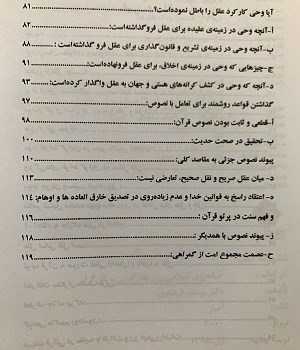 آیا وحی کارکرد عقل را باطل نموده‌است؟ ........ ۸۱
أ-آنچه وحی در زمینه‌ی عقیده برای عقل فروگذاشته‌است: ........ ۸۲
ب-آنچه وحی در زمینه‌ی تشریع و قانون‌گذاری برای عقل فرو گذاشته‌است: ........ ۸۸
ج-چیزهایی که وحی در زمینه‌ی اخلاق، برای عقل فرونهاده‌است: ........ ۹۱
د-آنچه که وحی در کشف کرانه‌های هستی و جهان به عقل واگذار کرده‌است: ........ ۹۳
گذاشتن قواعد روشمند برای تعامل با نصوص: ........ ۹۷
أ-قطعی و ثابت بودن نصوص قرآن: ........ ۹۸
ب-تحقیق در صحت حدیث: ........ ۱۰۰
پیوند نصوص جزئی به مقاصد کلی: ........ ۱۱۰
د- میان عقل صریح و نقل صحیح، تعارضی نیست: ........ ۱۱۳
ه- اعتقاد راسخ به قوانین خدا و عدم زیاده‌روی در تصدیق خارق العاده ها و اوهام: ۱۱۴
و فهم سنت در پرتو قرآن : ........ ۱۱۶
ز- پیوند نصوص با همدیگر: ........ ۱۱۸
ح-عصمت مجموع امت از گمراهی: ........ ۱۱۹